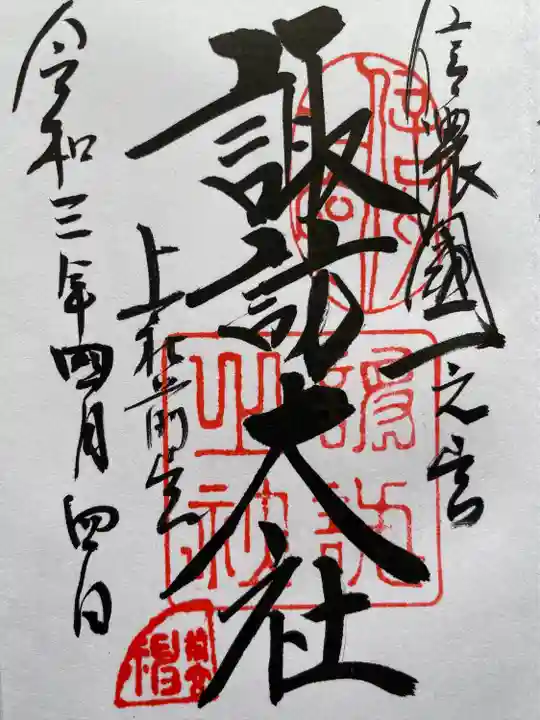 信濃國一之宮
諏訪大社
上社前宮
令和三年四月四日
諏訪
之神
前宮